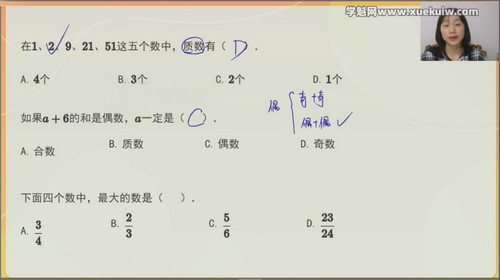 学魁网www.xuekuiw.com
在1、2、9、21、51这五个数中,质数有( D ).
A. 4个 B. 3个 C. 2个 D. 1个
偶 { 奇+奇
如果a+6的和是偶数,a一定是( C ).
偶+偶 ✓
A. 合数 B. 质数 C. 偶数 D. 奇数
下面四个数中,最大的数是( ).
A. 3/4 B. 2/3 C. 5/6 D. 23/24